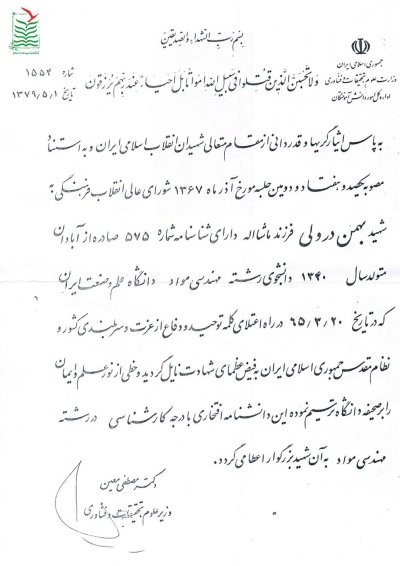 بسم رب الشهداء والصدیقین
جمهوری اسلامی ایران
وزارت علوم تحقیقات و فناوری
اداره کل امور دانش آموختگان
شماره ۱۵۵۴
تاریخ ۱۳۷۹/۵/۱
ولا تحسبن الذین قتلوا فی سبیل الله امواتا بل احیاء عند ربهم یرزقون
به پاس ایثارگریها و قدردانی از مقام متعالی شهیدان انقلاب اسلامی ایران و به استناد
مصوبه یکصد و هفتاد و دومین جلسه مورخ آذر ماه ۱۳۶۷ شورای عالی انقلاب فرهنگی به
شهید بهمن درولی فرزند ماشااله دارای شناسنامه شماره ۵۷۵ صادره از آبادان
متولد سال ۱۳۴۰ دانشجوی رشته مهندسی مواد دانشگاه علم و صنعت ایران
که در تاریخ ۶۵/۳/۲۰ در راه اعتلای کلمه توحید و دفاع از عزت و سربلندی کشور و
نظام مقدس جمهوری اسلامی ایران به فیض عظمای شهادت نایل گردید و خطی از نور علم و ایمان
را بر صحیفه دانشگاه ترسیم نموده این دانشنامه افتخاری با درجه کارشناسی در رشته
مهندسی مواد به آن شهید بزرگوار اعطا می گردد.
دکتر مصطفی معین
وزیر علوم تحقیقات و فناوری